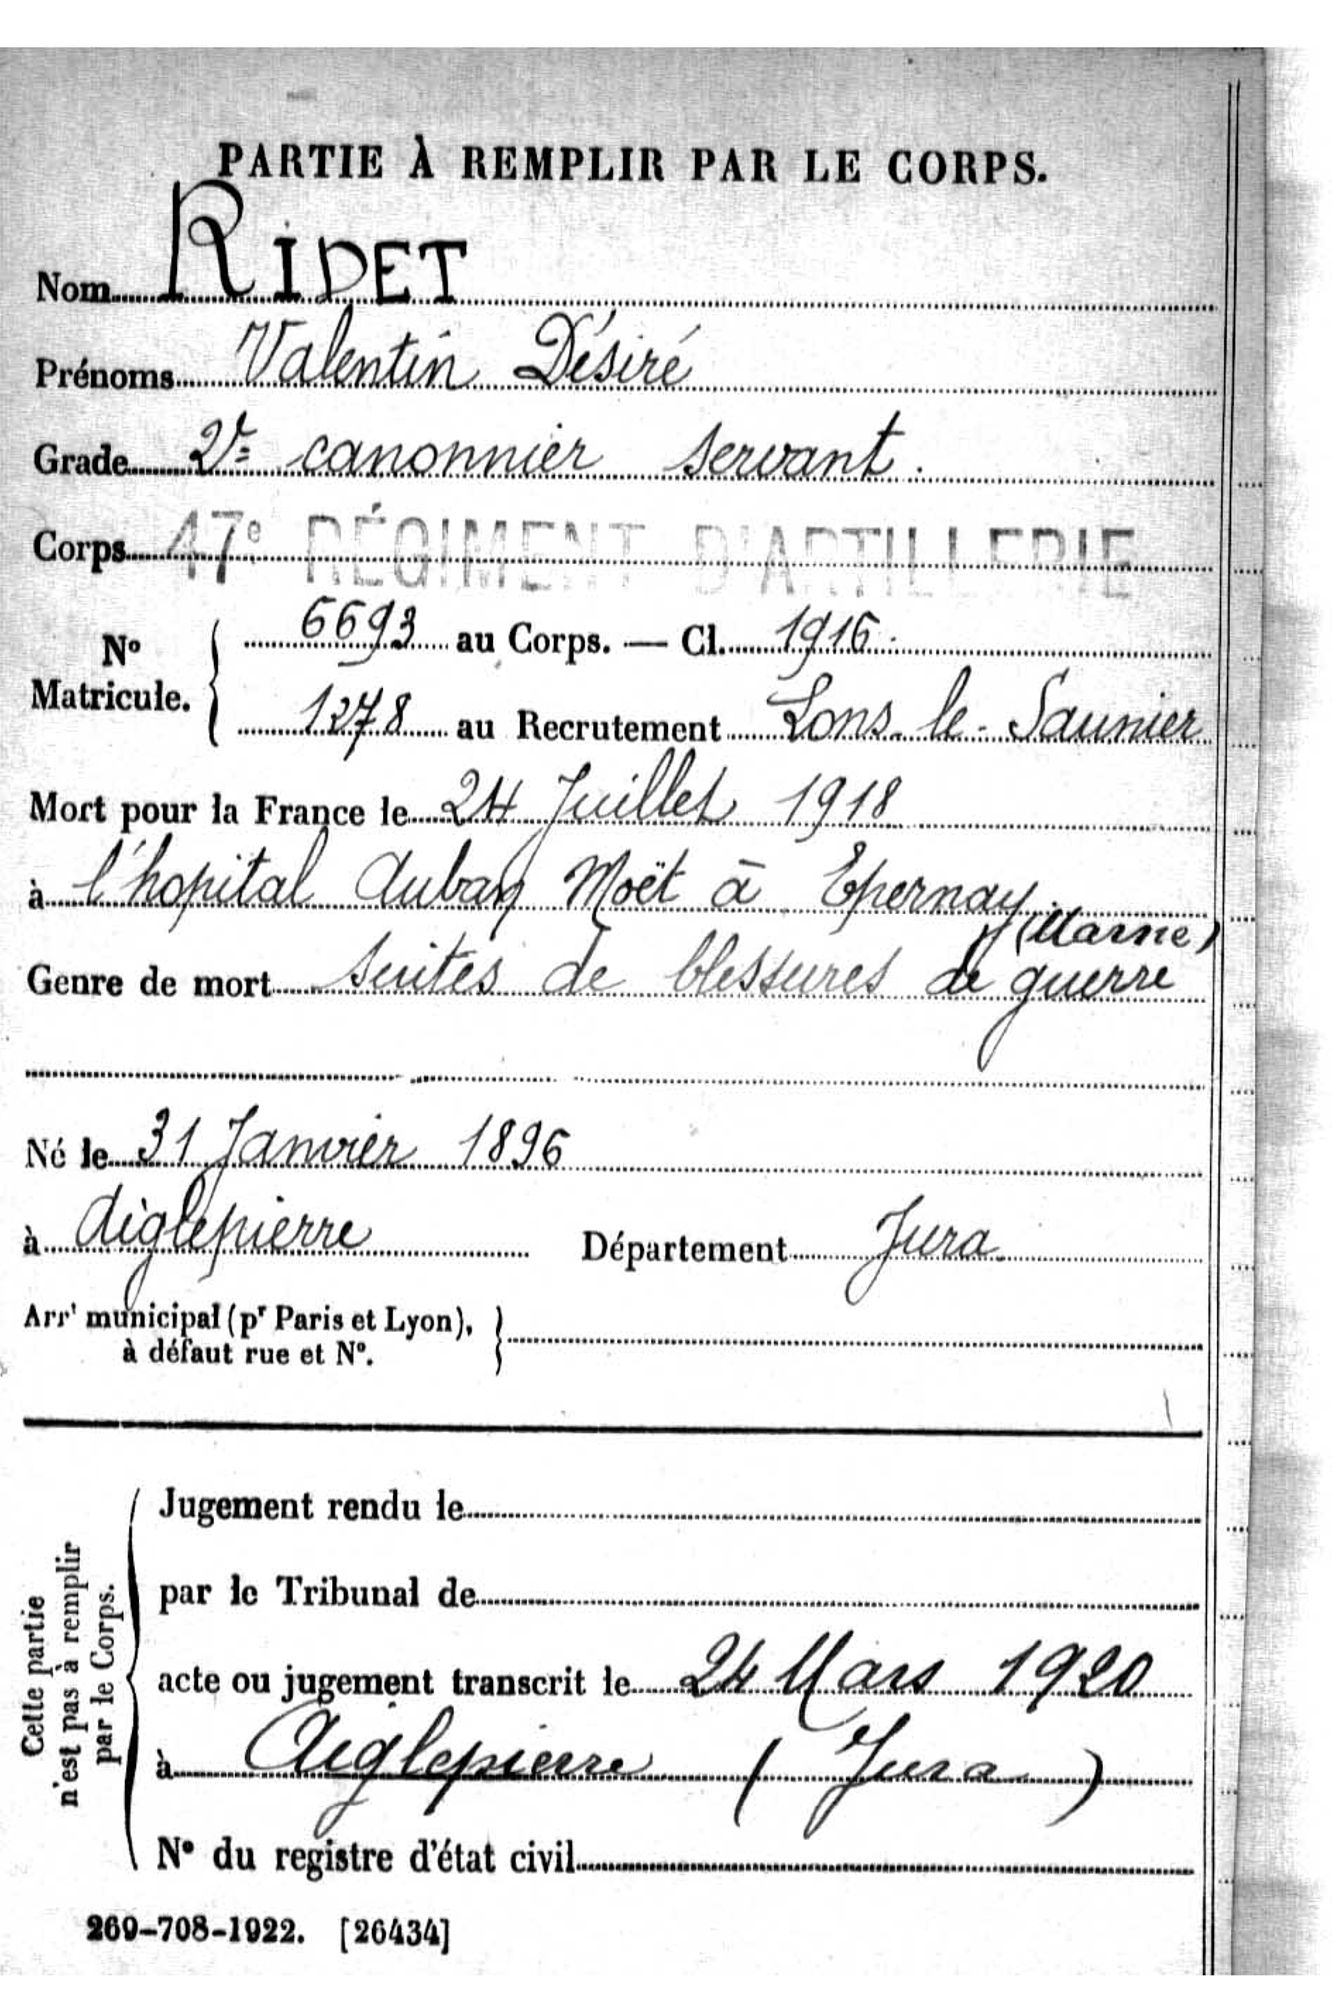 PARTIE À REMPLIR PAR LE CORPS.
Nom RIDET
Prénoms Valentin Désiré
Grade 2e canonnier servant.
Corps 47e RÉGIMENT D'ARTILLERIE
No Matricule. { 6693 au Corps. — Cl. 1916.
1278 au Recrutement Lons-le-Saunier
Mort pour la France le 24 Juillet 1918
à l'hopital Auban Moët à Epernay (Marne)
Genre de mort suites de blessures de guerre
Né le 31 Janvier 1896
à Aiglepierre Département Jura
Arrt municipal (pr Paris et Lyon), }
à défaut rue et No.
Cette partie
n'est pas à remplir
par le Corps.
Jugement rendu le
par le Tribunal de
acte ou jugement transcrit le 24 Mars 1920
à Aiglepierre (Jura)
No du registre d'état civil
269-708-1922. [26434]